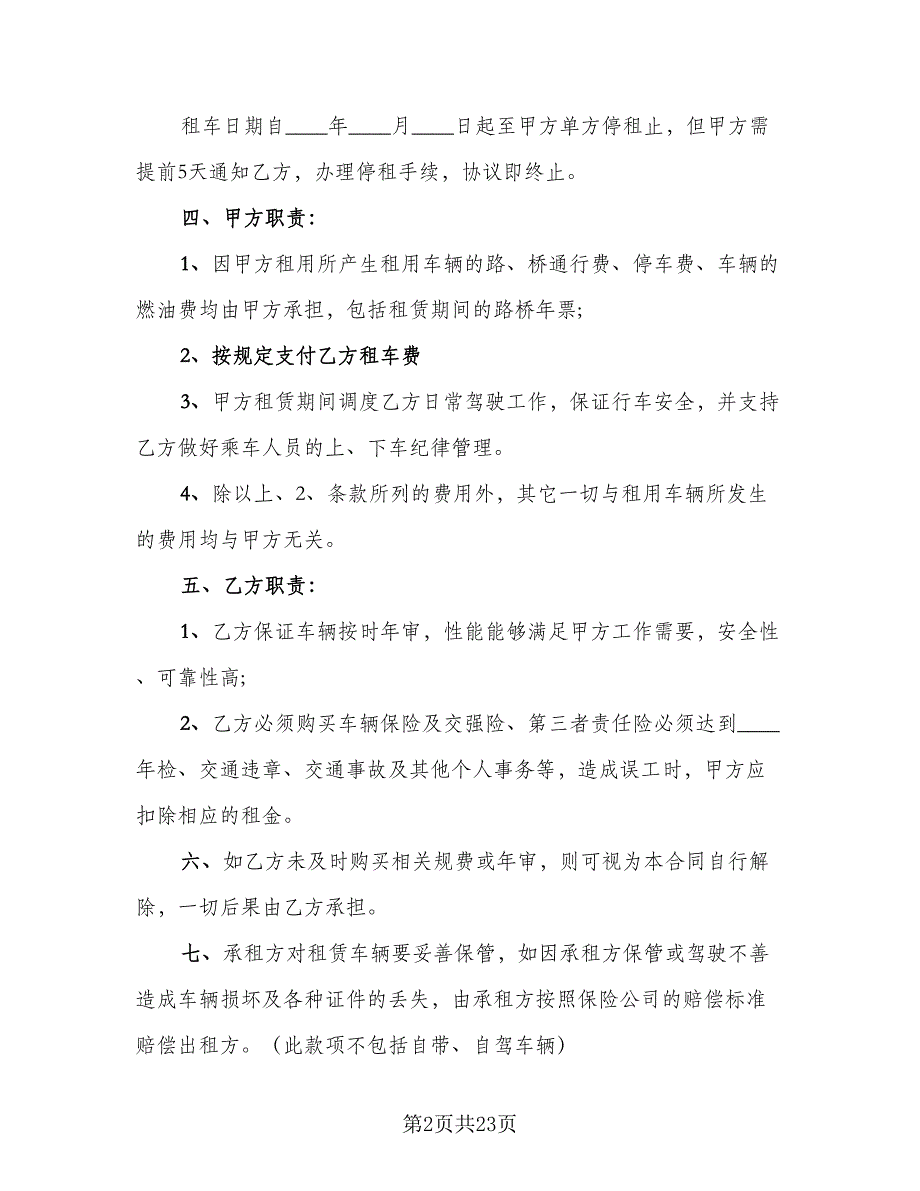 租车日期自____年____月____日起至甲方单方停租止，但甲方需
提前5天通知乙方，办理停租手续，协议即终止。
四、甲方职责：
1、因甲方租用所产生租用车辆的路、桥通行费、停车费、车辆的
燃油费均由甲方承担，包括租赁期间的路桥年票;
2、按规定支付乙方租车费
3、甲方租赁期间调度乙方日常驾驶工作，保证行车安全，并支持
乙方做好乘车人员的上、下车纪律管理。
4、除以上、2、条款所列的费用外，其它一切与租用车辆所发生
的费用均与甲方无关。
五、乙方职责：
1、乙方保证车辆按时年审，性能能够满足甲方工作需要，安全性
、可靠性高;
2、乙方必须购买车辆保险及交强险、第三者责任险必须达到____
年检、交通违章、交通事故及其他个人事务等，造成误工时，甲方应
扣除相应的租金。
六、如乙方未及时购买相关规费或年审，则可视为本合同自行解
除，一切后果由乙方承担。
七、承租方对租赁车辆要妥善保管，如因承租方保管或驾驶不善
造成车辆损坏及各种证件的丢失，由承租方按照保险公司的赔偿标准
赔偿出租方。（此款项不包括自带、自驾车辆）
第2页共23页